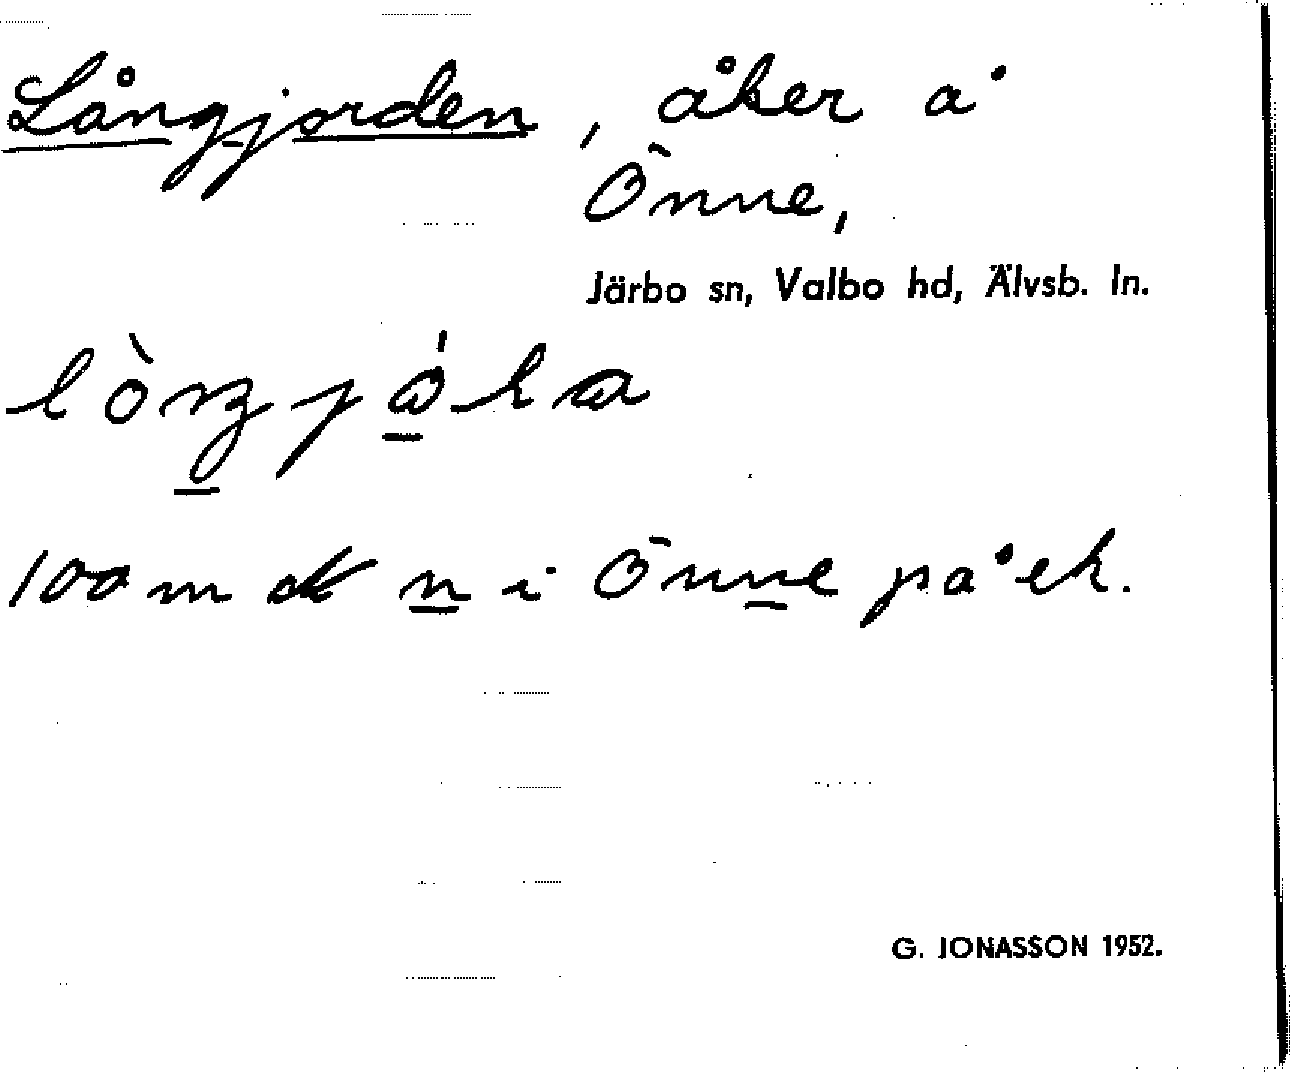 Långjorden, åker å
Önne,
Järbo sn, Valbo hd, Älvsb. ln.
100 m n i Önne på ek.
G. JONASSON 1952.